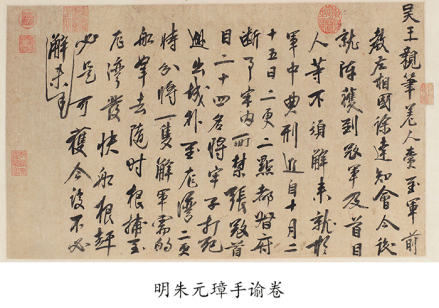 吴王親筆差人賫至軍前
教左相國徐達知會今後
就陣獲到寇軍及首目
人等不須解来就於
軍中典刑近自十月二
十五日二更二點都督府
断事牢内所禁張寇首
目二十四名將牢子打死
逃出城外至龍灣二更
時分將一隻解軍需的
船率去随时根捕至
龍灣發快船根趕
必是可獲今後不必
解来
明朱元璋手谕卷